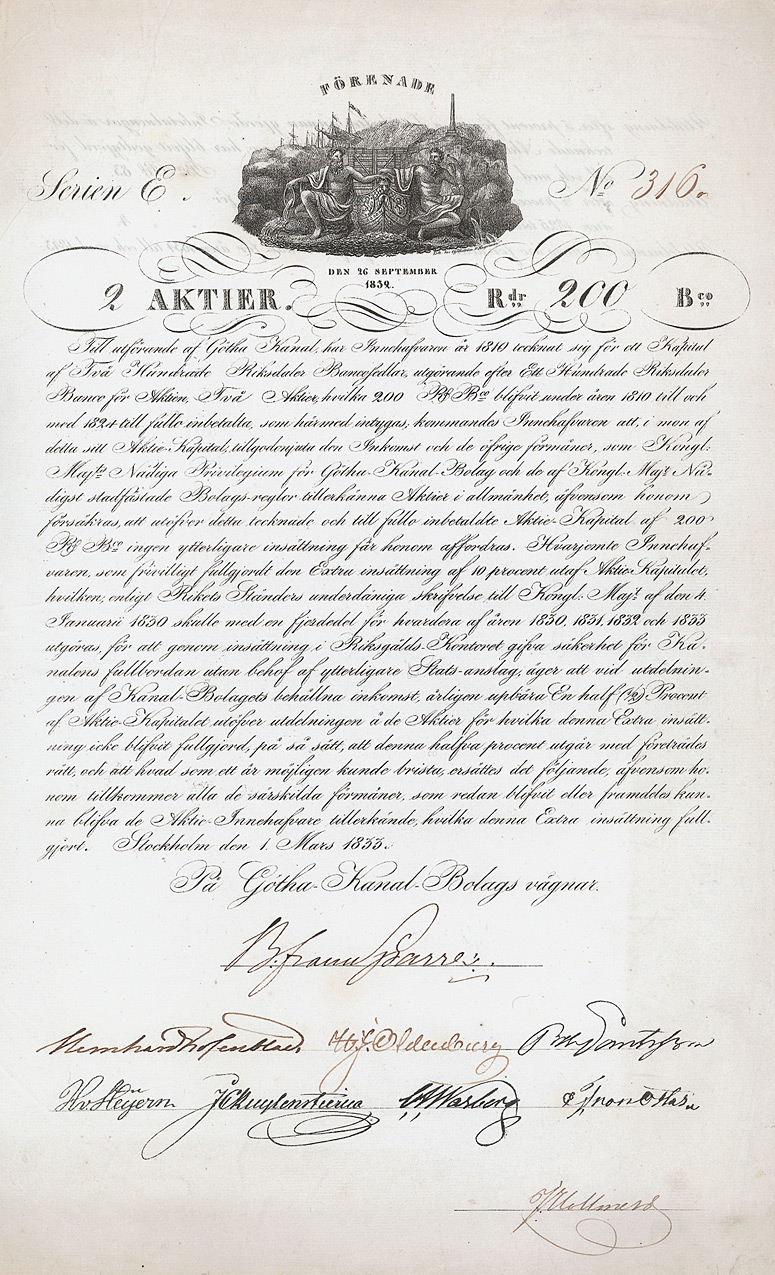 FÖRENADE
Serien E.
No 316.
DEN 26 SEPTEMBER
1832.
2 AKTIER.
Rdr 200 Bco
Till utförande af Götha Kanal, har Innehafvaren år 1810 tecknat sig för ett Kapital
af Två Hundrade Riksdaler Bancosedlar, utgörande efter Ett Hundrade Riksdaler
Banco för Aktien, Två Aktier, hvilka 200 Rdr Bco blifvit under åren 1810 till och
med 1824 till fullo inbetalta, som härmed intygas, kommandes Innehafvaren att, i mon af
detta sitt Aktie-Kapital, tillgodonjuta den Inkomst och de öfrige förmåner, som Kongl.
Majts Nådiga Privilegium för Götha-Kanal-Bolag och de af Kongl. Majt Nå-
digst stadfästade Bolags-reglor tillerkänna Aktier i allmänhet, äfvensom honom
försäkras, att utöfver detta tecknade och till fullo inbetaldte Aktie-Kapital af 200
Rdr Bco ingen ytterligare insättning får honom affordras. Hvarjemte Innehaf-
varen, som frivilligt fullgjordt den Extra insättning af 10 procent utaf Aktie-Kapitalet,
hvilken, enligt Rikets Ständers underdåniga skrifvelse till Kongl. Majt af den 4.
Januarii 1830 skulle med en fjerdedel för hvardera af åren 1830, 1831, 1832 och 1833
utgöras, för att genom insättning i Riksgälds-Kontoret gifva säkerhet för Ka-
nalens fullbordan utan behof af ytterligare Stats-anslag, äger att vid utdelnin-
gen af Kanal-Bolagets behållna inkomst, årligen uppbära En half (1/2) Procent
af Aktie-Kapitalet utöfver utdelningen å de Aktier för hvilka denna Extra insätt-
ning icke blifvit fullgjord, på så sätt, att denna halfva procent utgår med företrädes
rätt, och att hvad som ett år möjligen kunde brista, ersättes det följande, äfvensom ho-
nom tillkommer alla de särskilda förmåner, som redan blifvit eller framdeles kun-
na blifva de Aktie-Innehafvare tillerkände, hvilka denna Extra insättning full-
gjort. Stockholm den 1. Mars 1833.
På Götha-Kanal-Bolags vägnar.
B. franc Sparre
H.J. Oldenburg
CWarberg